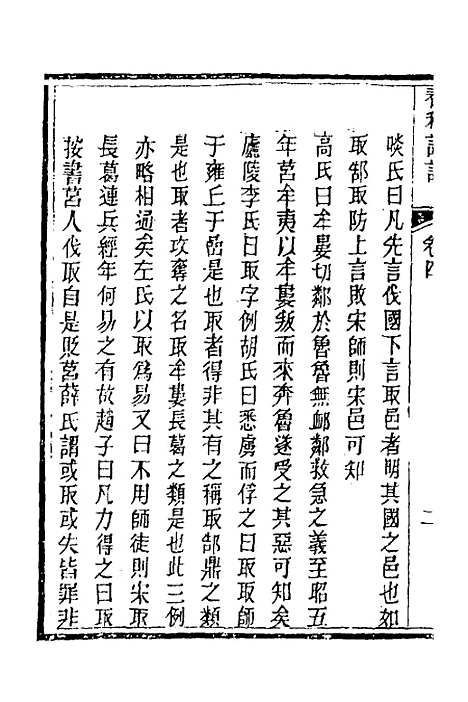 啖氏曰凡先言伐國下言取邑者明其國之邑也如
取郜取防上言敗宋師則宋邑可知
高氏曰牟婁切鄰於魯魯無卹鄰救急之義至昭五
年莒牟夷以牟婁叛而來奔魯遂受之其惡可知矣
廬陵李氏曰取字例胡氏曰悉虜而俘之曰取取師
于雍丘于嵒是也取者得非其有之稱取郜鼎之類
是也取者攻奪之名取牟婁長葛之類是也此三例
亦略相通矣左氏以取爲易又曰不用師徒則宋取
長葛連兵經年何易之有故趙子曰凡力得之曰取
按書莒人伐取自是貶莒薛氏謂或取或失皆罪非
卷四
二